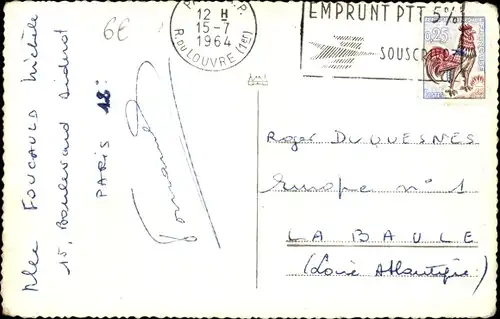 6€
PARIS R.P.
12 H
15-7
1964
R. DU LOUVRE (1er)
EMPRUNT PTT 5%
SOUSCR
0,25
Mlle FOUCAULD Michèle
15, Boulevard Diderot
PARIS 12e
Roger DUQUESNES
Europe n° 1
LA BAULE
(Loire Atlantique)